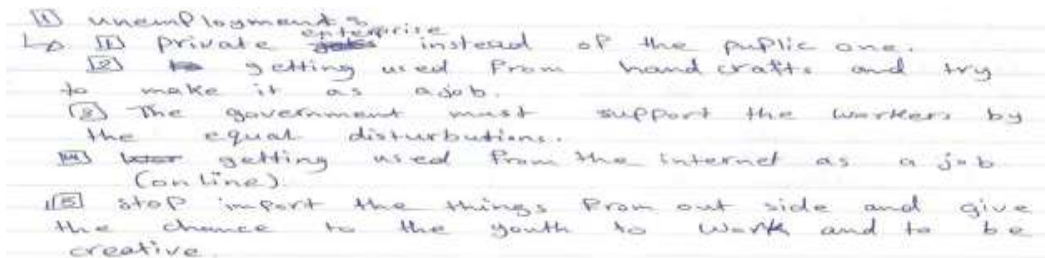 [1] unemployments
↳ [1] private enterprise instead of the puplic one.
[2] getting used from hand crafts and try
to make it as a job.
[3] The government must support the workers by
the equal disturbutions.
[4] getting used from the internet as a job
(on line).
[5] stop import the things from out side and give
the chance to the youth to work and to be
creative.